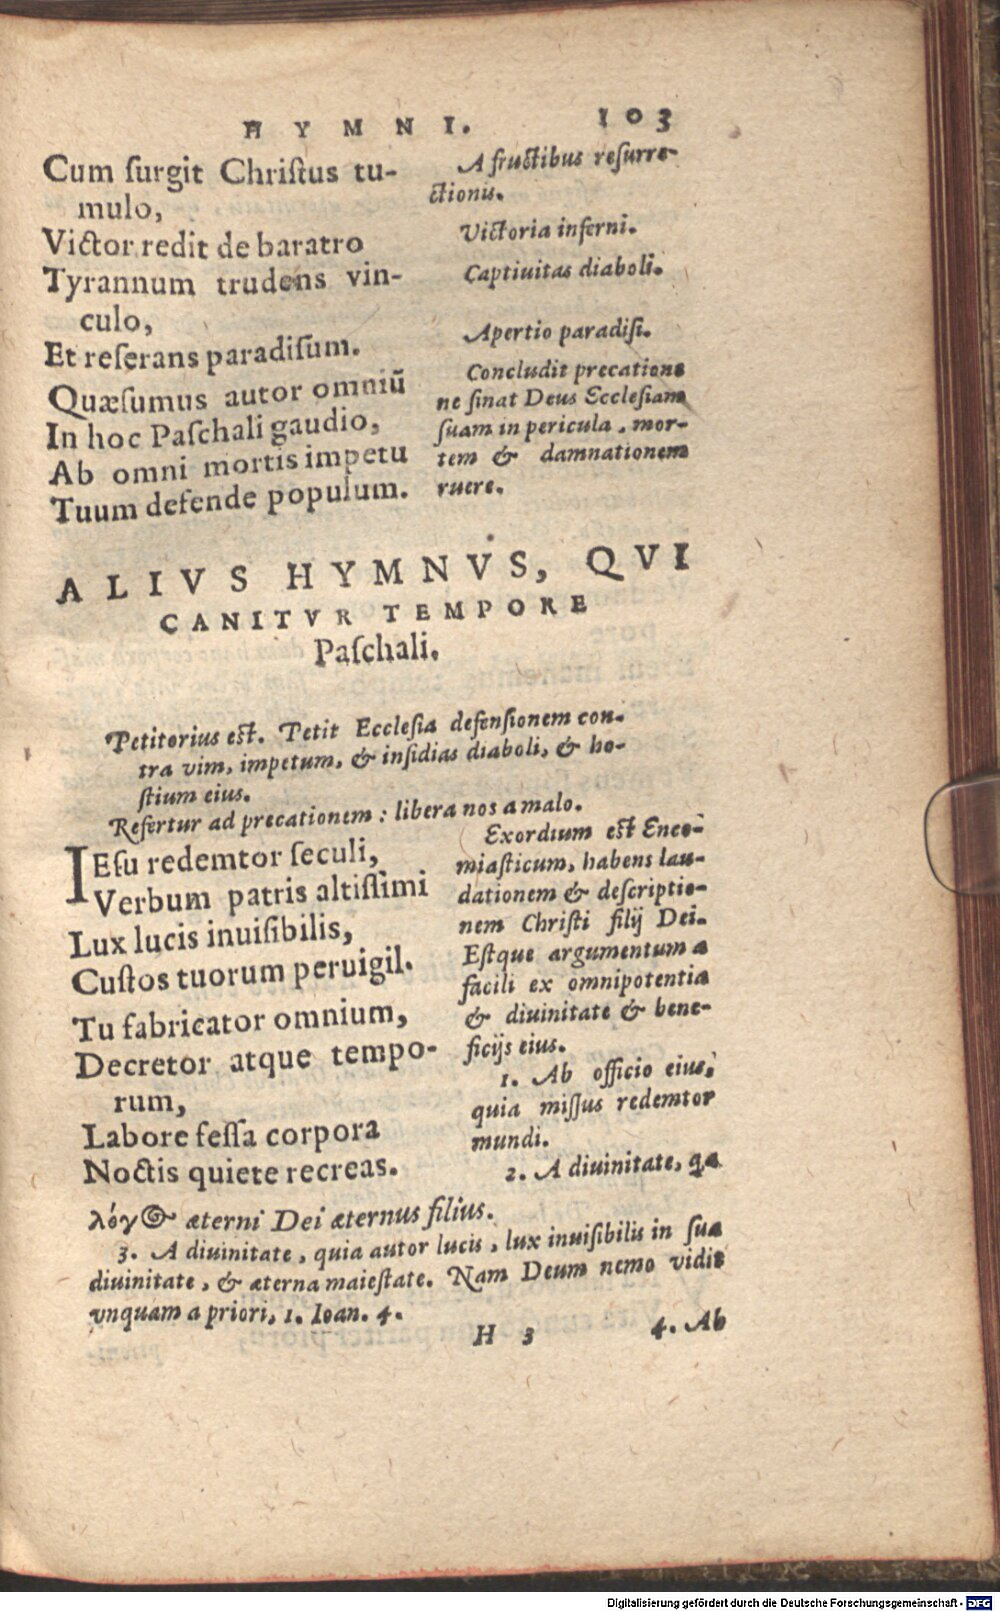 HYMNI. 103
Cum ſurgit Chriſtus tu-
mulo,
Victor redit de baratro
Tyrannum trudens vin-
culo,
Et reſerans paradiſum.
Quæſumus autor omniũ
In hoc Paſchali gaudio,
Ab omni mortis impetu
Tuum defende populum.
A fructibus reſurre-
ctionis.
Victoria inferni.
Captiuitas diaboli.
Apertio paradiſi.
Concludit precatione
ne ſinat Deus Eccleſiam
ſuam in pericula, mor-
tem & damnationem
ruere.
ALIVS HYMNVS, QVI
CANITVR TEMPORE
Paſchali.
Petitorius eſt. Petit Eccleſia defenſionem con-
tra vim, impetum, & inſidias diaboli, & ho-
ſtium eius.
Refertur ad precationem: libera nos a malo.
IEſu redemtor ſeculi,
Verbum patris altiſſimi
Lux lucis inuiſibilis,
Cuſtos tuorum peruigil.
Tu fabricator omnium,
Decretor atque tempo-
rum,
Labore feſſa corpora
Noctis quiete recreas.
Exordium eſt Enco-
miaſticum, habens lau-
dationem & deſcriptio-
nem Chriſti filij Dei.
Eſtque argumentum a
facili ex omnipotentia
& diuinitate & bene-
ficijs eius.
1. Ab officio eius,
quia miſſus redemtor
mundi.
2. A diuinitate, qa
λόγ&#x3BF;ς æterni Dei æternus filius.
3. A diuinitate, quia autor lucis, lux inuiſibilis in ſua
diuinitate, & æterna maieſtate. Nam Deum nemo vidit
vnquam a priori, 1. Ioan. 4.
H 3 4. Ab
Digitalisierung gefördert durch die Deutsche Forschungsgemeinschaft - DFG